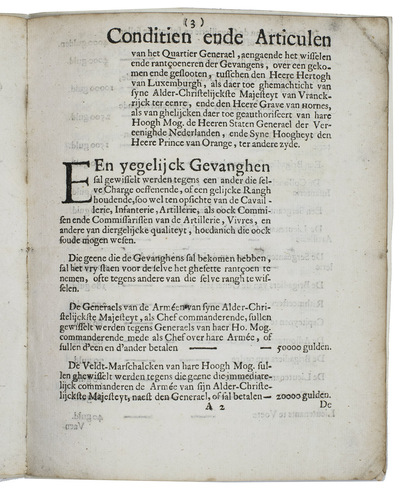 (3)
Conditien ende Articulen
van het Quartier Generael, aengaende het wisselen
ende rantçoeneren der Gevangens, over een geko-
men ende geslooten, tusschen den Heere Hertogh
van Luxemburgh, als daer toe ghemachticht van
syne Alder-Christelijckste Majesteyt van Vranck-
rijck ter eenre, ende den Heere Grave van Hornes,
als van ghelijcken daer toe geauthoriseert van hare
Hoogh Mog. de Heeren Staten Generael der Ver-
eenighde Nederlanden, ende Syne Hoogheyt den
Heere Prince van Orange, ter andere zyde.
EEn yegelijck Gevanghen
sal gewisselt werden tegens een ander die sel-
ve Charge oeffenende, of een gelijcke Rangh
houdende, soo wel ten opsichte van de Cavail-
lerie, Infanterie, Artillerie, als oock Commi-
sen ende Commissarissen van de Artillerie, Vivres, en
andere van diergelijcke qualiteyt, hoedanich die oock
soude mogen wesen.
Die geene die de Gevanghens sal bekomen hebben,
sal het vry staen voor de selve het ghesette rantçoen te
nemen, ofte tegens andere van die selve rangh te wis-
selen.
De Generaels van de Arméen van syne Alder-Chri-
stelijckste Majesteyt, als Chef commanderende, sullen
gewisselt werden tegens Generaels van haer Ho. Mog.
commanderende mede als Chef over hare Armée, of
sullen d'een en d'ander betalen — 50000 gulden.
De Veldt-Marschalcken van hare Hoogh Mog. sul-
len ghewisselt werden tegens die geene die immediate-
lijck commanderen de Armée van sijn Alder-Christe-
lijckste Majesteyt, naest den Generael, of sal betalen — 20000 gulden.
A 2 De